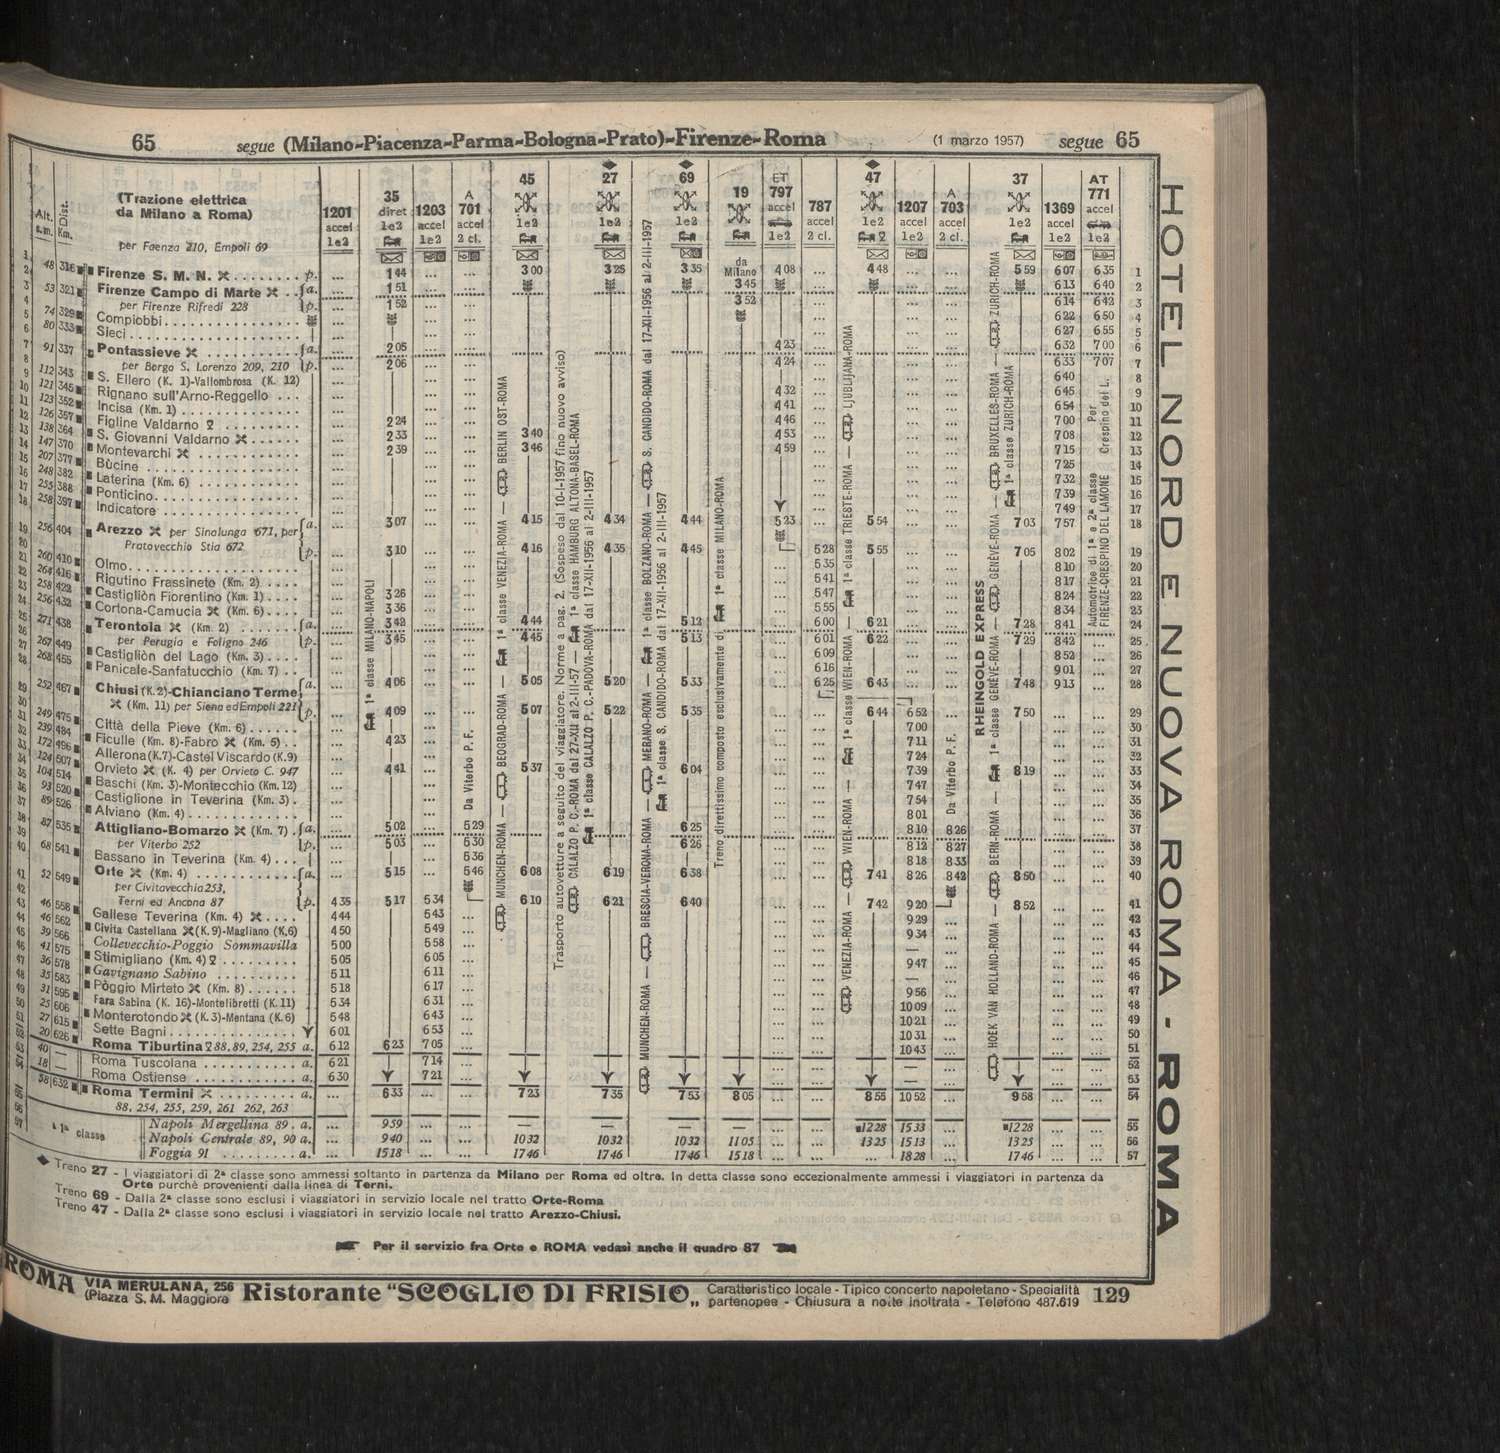 65 segue (Milano-Piacenza-Parma-Bologna-Prato)-Firenze-Roma (1 marzo 1957) segue 65
(Trazione elettrica
da Milano a Roma)
per Faenza 210, Empoli 69
Alt. s.m. Dist. Km.
1201 accel 1e2
35 diret 1e2
1203 accel 1e2
A 701 2 cl.
45 1e2
27 1e2
69 1e2
19 da Milano
ET 797 accel 1e2
787 accel 2 cl.
47 1e2
1207 accel 1e2
A 703 accel 2 cl.
37 1e2
1369 accel 1e2
AT 771 accel 1e2
48 316 Firenze S. M. N. p. ... 1 44 ... ... 3 00 3 25 3 35 4 08 ... 4 48 ... ... 5 59 6 07 6 35 1
53 321 Firenze Campo di Marte a. ... 1 51 ... ... 3 45 ... ... ... 6 13 6 40 2
per Firenze Rifredi 228 p. ... 1 52 ... ... 3 52 ... ... ... 6 14 6 42 3
74 329 Compiobbi ... 6 22 6 50 4
80 333 Sieci ... 6 27 6 55 5
91 337 Pontassieve a. ... 2 05 ... ... 4 23 ... ... ... 6 32 7 00 6
per Borgo S. Lorenzo 209, 210 p. ... 2 06 ... ... 4 24 ... ... ... 6 33 7 07 7
112 343 S. Ellero (K. 1)-Vallombrosa (K. 12) 6 40 8
121 345 Rignano sull'Arno-Reggello 4 32 6 45 9
123 352 Incisa (Km. 1) 4 41 6 54 10
126 357 Figline Valdarno 2 24 4 46 7 00 11
138 364 S. Giovanni Valdarno 2 33 3 40 4 53 7 08 12
147 370 Montevarchi 2 39 3 46 4 59 7 15 13
207 377 Bùcine 7 25 14
248 382 Laterina (Km. 6) 7 32 15
255 388 Ponticino 7 39 16
258 397 Indicatore 7 49 17
256 404 Arezzo per Sinalunga 671, per a. 3 07 4 15 4 34 4 44 5 23 5 54 7 03 7 57 18
Pratovecchio Stia 672 p. 3 10 4 16 4 35 4 45 5 28 5 55 7 05 8 02 19
260 410 Olmo 5 35 8 10 20
264 416 Rigutino Frassineto (Km. 2) 5 41 8 17 21
258 422 Castigliòn Fiorentino (Km. 1) 3 26 5 47 8 24 22
256 432 Cortona-Camucia (Km. 6) 3 36 5 55 8 34 23
271 438 Terontola (Km. 2) a. 3 42 4 44 5 12 6 00 6 21 7 28 8 41 24
per Perugia e Foligno 246 p. 3 45 4 45 5 13 6 01 6 22 7 29 8 42 25
267 449 Castigliòn del Lago (Km. 3) 6 09 8 52 26
268 455 Panicale-Sanfatucchio (Km. 7) 6 16 9 01 27
252 467 Chiusi (K. 2)-Chianciano Terme a. 4 06 5 05 5 20 5 33 6 25 6 43 7 48 9 13 28
(Km. 11) per Siena ed Empoli 221 p. 4 09 5 07 5 22 5 35 6 44 6 52 7 50 29
249 475 Città della Pieve (Km. 6) 7 00 30
239 484 Ficulle (Km. 8)-Fabro (Km. 5) 4 23 7 11 31
172 496 Allerona (K.7)-Castel Viscardo (K.9) 7 24 32
124 507 Orvieto (K. 4) per Orvieto C. 947 4 41 5 37 6 04 7 39 8 19 33
104 514 Baschi (Km. 3)-Montecchio (Km. 12) 7 47 34
93 520 Castiglione in Teverina (Km. 3) 7 54 35
89 526 Alviano (Km. 4) 8 01 36
87 535 Attigliano-Bomarzo (Km. 7) a. 5 02 5 29 6 25 8 10 8 26 37
per Viterbo 252 p. 5 03 5 30 6 26 8 12 8 27 38
68 541 Bassano in Teverina (Km. 4) 5 36 8 18 8 33 39
52 549 Orte (Km. 4) a. 5 15 5 46 6 08 6 19 6 38 7 41 8 26 8 42 8 50 40
per Civitavecchia 253,
Terni ed Ancona 87 p. 4 35 5 17 5 34 6 10 6 21 6 40 7 42 9 20 8 52 41
46 558 Gallese Teverina (Km. 4) 4 44 5 43 9 29 42
46 562 Civita Castellana (K. 9)-Magliano (K,6) 4 50 5 49 9 34 43
39 566 Collevecchio-Poggio Sommavilla 5 00 5 58 — 44
41 575 Stimigliano (Km. 4) 5 05 6 05 9 47 45
36 578 Gavignano Sabino 5 11 6 11 — 46
35 583 Pòggio Mirteto (K. 8) 5 18 6 17 9 56 47
31 595 Fara Sabina (K. 16)-Montelibretti (K. 11) 5 34 6 31 10 09 48
25 606 Monterotondo (K. 3)-Mentana (K. 6) 5 48 6 43 10 21 49
27 615 Sette Bagni 6 01 6 53 10 31 50
20 626 Roma Tiburtina 88, 89, 254, 255 a. 6 12 6 23 7 05 10 43 51
40 — Roma Tuscolana a. 6 21 7 14 — 52
18 — Roma Ostiense a. 6 30 7 21 — 53
58 632 Roma Termini a. ... 6 33 ... ... 7 23 7 35 7 53 8 05 ... ... 8 55 10 52 ... 9 58 ... ... 54
88, 254, 255, 259, 261 262, 263
Napoli Mergellina 89 . a. ... 9 59 ... ... — — — — ... ... 12 28 15 33 ... 12 28 ... ... 55
1ª classe Napoli Centrale 89, 90 a. ... 9 40 ... ... 10 32 10 32 10 32 11 05 ... ... 13 25 15 13 ... 13 25 ... ... 56
Foggia 91 a. ... 15 18 ... ... 17 46 17 46 17 46 15 18 ... ... ... 18 28 ... 17 46 ... ... 57
1ª classe MILANO-NAPOLI
Da Viterbo P. F.
MUNCHEN-ROMA — BEOGRAD-ROMA — 1ª classe VENEZIA-ROMA — BERLIN OST-ROMA
Trasporto autovetture a seguito del viaggiatore. Norme a pag. 2. (Sospeso dal 10-I-1957 fino nuovo avviso)
CALALZO P. C.-ROMA dal 27-XII al 2-III-57 — 1ª classe HAMBURG ALTONA-BASEL-ROMA
1ª classe CALALZO P. C.-PADOVA-ROMA dal 17-XII-1956 al 2-III-1957
MUNCHEN-ROMA — BRESCIA-VERONA-ROMA — MERANO-ROMA — 1ª classe BOLZANO-ROMA — S. CANDIDO-ROMA dal 17-XII-1956 al 2-III-1957
1ª classe S. CANDIDO-ROMA dal 17-XII-1956 al 2-III-1957
Treno direttissimo composto esclusivamente di 1ª classe MILANO-ROMA
VENEZIA-ROMA — WIEN-ROMA — 1ª classe WIEN-ROMA — 1ª classe TRIESTE-ROMA — LJUBLJANA-ROMA
Da Viterbo P. F.
RHEINGOLD EXPRESS
HOEK VAN HOLLAND-ROMA — BERN-ROMA — 1ª classe GENÈVE-ROMA — GENÈVE-ROMA — BRUXELLES-ROMA — ZURICH-ROMA
1ª classe ZURICH-ROMA
Automotrice di 1ª e 2ª classe FIRENZE-CRESPINO DEL LAMONE
Per Crespino del L.
Treno 27 - I viaggiatori di 2ª classe sono ammessi soltanto in partenza da Milano per Roma ed oltre. In detta classe sono eccezionalmente ammessi i viaggiatori in partenza da
Orte purchè provenienti dalla linea di Terni.
Treno 69 - Dalla 2ª classe sono esclusi i viaggiatori in servizio locale nel tratto Orte-Roma
Treno 47 - Dalla 2ª classe sono esclusi i viaggiatori in servizio locale nel tratto Arezzo-Chiusi.
Per il servizio fra Orte e ROMA vedasi anche il quadro 87
ROMA VIA MERULANA, 256
(Piazza S. M. Maggiore
Ristorante "SCOGLIO DI FRISIO„
Caratteristico locale - Tipico concerto napoletano - Specialità
partenopee - Chiusura a notte inoltrata - Telefono 487.619
129
HOTEL NORD E NUOVA ROMA - ROMA